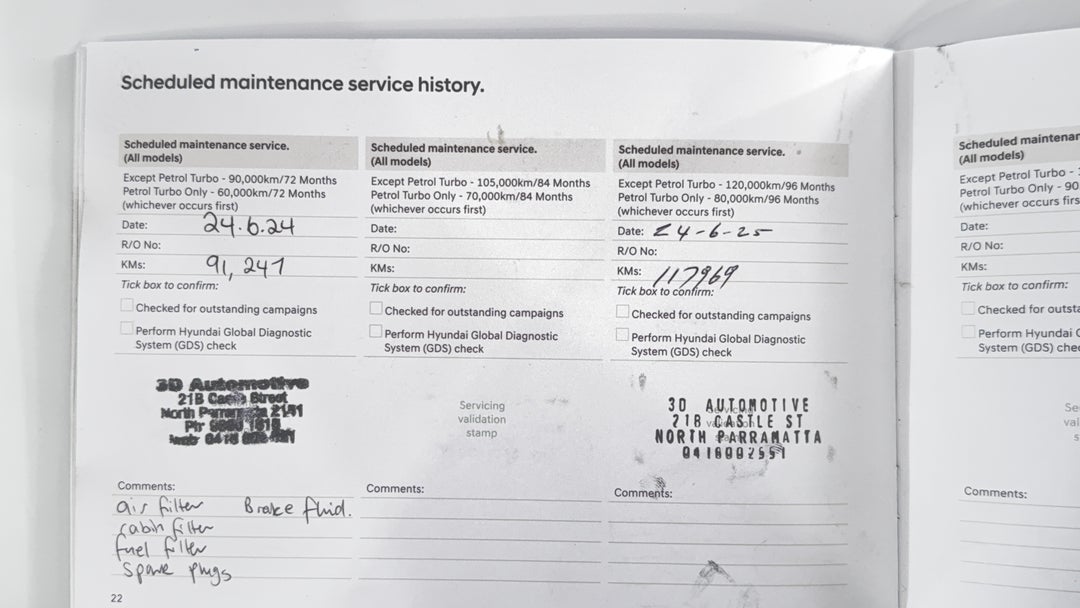 Scheduled maintenance service history.
Scheduled maintenance service.
(All models)
Except Petrol Turbo - 90,000km/72 Months
Petrol Turbo Only - 60,000km/72 Months
(whichever occurs first)
Date: 24.6.24
R/O No:
KMs: 91,247
Tick box to confirm:
Checked for outstanding campaigns
Perform Hyundai Global Diagnostic
System (GDS) check
3D Automotive
21B Castle Street
North Parramatta 2151
Comments:
air filter Brake fluid.
cabin filter
fuel filter
spark plugs
22
Scheduled maintenance service.
(All models)
Except Petrol Turbo - 105,000km/84 Months
Petrol Turbo Only - 70,000km/84 Months
(whichever occurs first)
Date:
R/O No:
KMs:
Tick box to confirm:
Checked for outstanding campaigns
Perform Hyundai Global Diagnostic
System (GDS) check
Servicing
validation
stamp
Comments:
Scheduled maintenance service.
(All models)
Except Petrol Turbo - 120,000km/96 Months
Petrol Turbo Only - 80,000km/96 Months
(whichever occurs first)
Date: 24-6-25
R/O No:
KMs: 117969
Tick box to confirm:
Checked for outstanding campaigns
Perform Hyundai Global Diagnostic
System (GDS) check
3D AUTOMOTIVE
21B CASTLE ST
NORTH PARRAMATTA
Comments:
Scheduled maintenan
(All models)
Except Petrol Turbo -
Petrol Turbo Only - 90
(whichever occurs firs
Date:
R/O No:
KMs:
Tick box to confirm:
Checked for outsta
Perform Hyundai G
System (GDS) chec
Se
val
s
Comments: